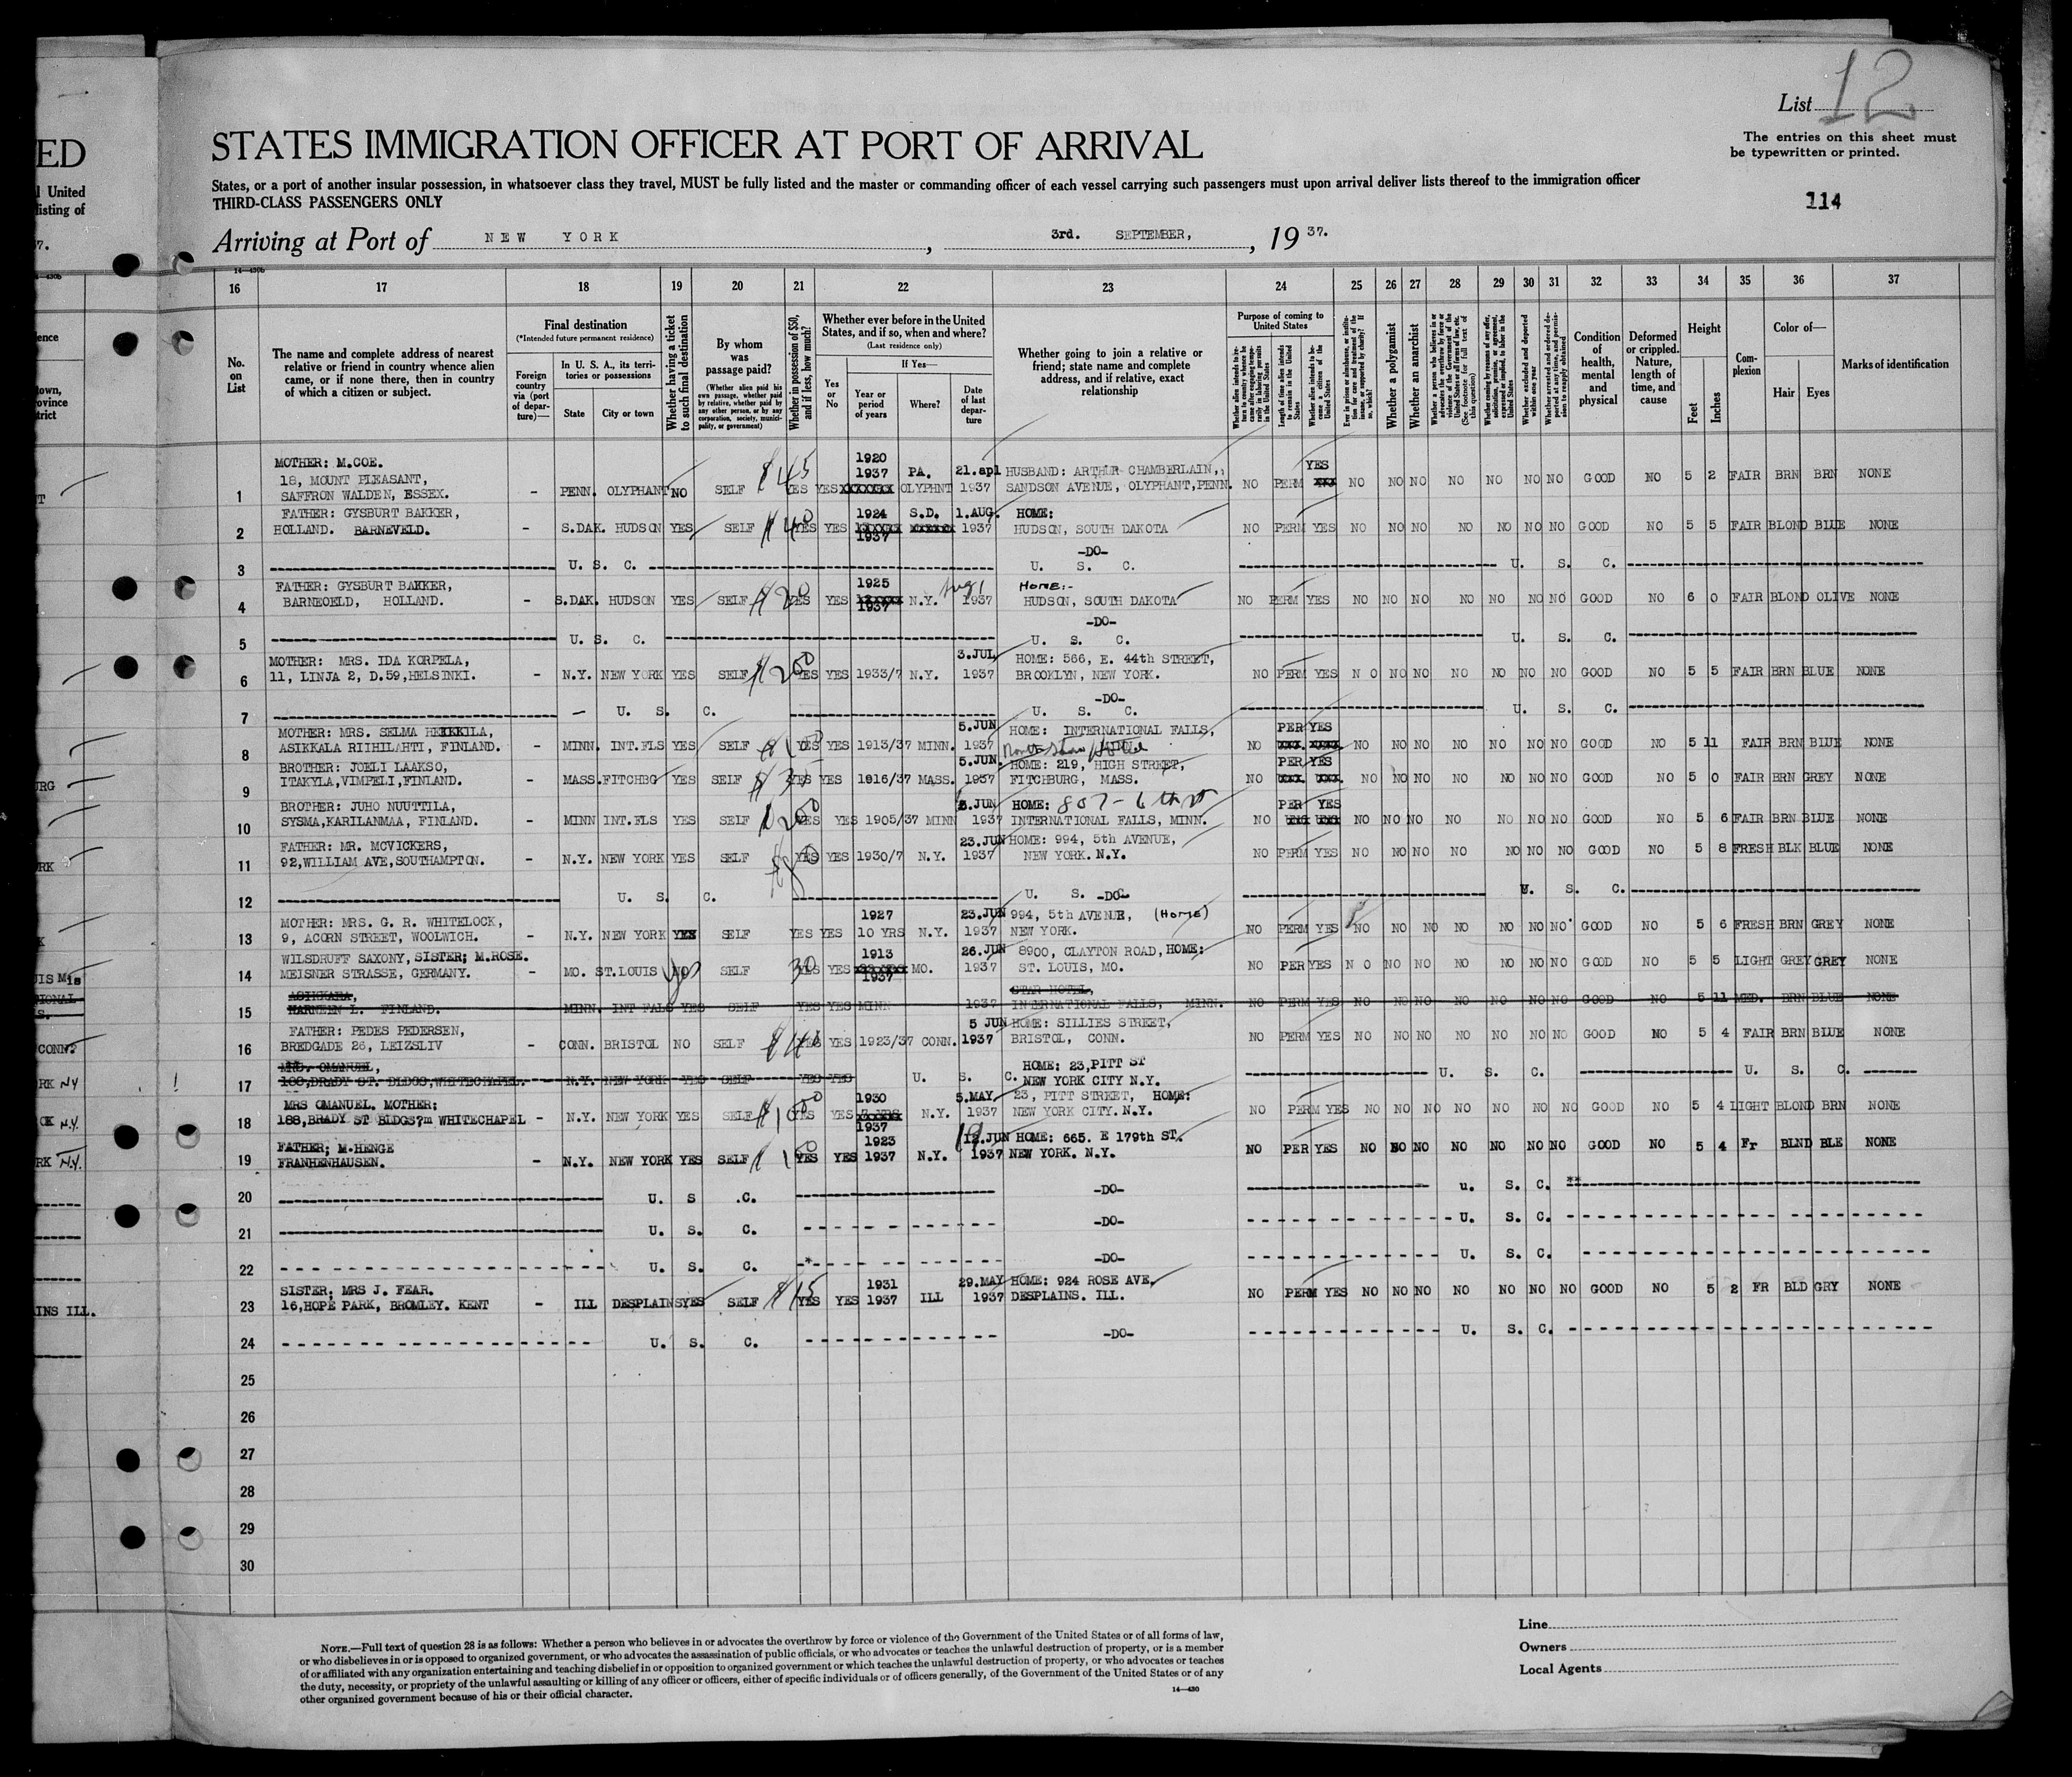 List 12
The entries on this sheet must
be typewritten or printed.
114
ED
STATES IMMIGRATION OFFICER AT PORT OF ARRIVAL
l United
listing of
States, or a port of another insular possession, in whatsoever class they travel, MUST be fully listed and the master or commanding officer of each vessel carrying such passengers must upon arrival deliver lists thereof to the immigration officer
THIRD-CLASS PASSENGERS ONLY
Arriving at Port of NEW YORK, 3rd. SEPTEMBER, 1937.
14—430b
16 17 18 19 20 21 22 23 24 25 26 27 28 29 30 31 32 33 34 35 36 37
No. on List
The name and complete address of nearest relative or friend in country whence alien came, or if none there, then in country of which a citizen or subject.
Final destination
(*Intended future permanent residence)
Foreign country via (port of departure)—
In U. S. A., its territories or possessions
State
City or town
Whether having a ticket to such final destination
By whom was passage paid?
(Whether alien paid his own passage, whether paid by relative, whether paid by any other person, or by any corporation, society, municipality, or government)
Whether in possession of $50, and if less, how much?
Whether ever before in the United States, and if so, when and where?
(Last residence only)
Yes or No
If Yes—
Year or period of years
Where?
Date of last departure
Whether going to join a relative or friend; state name and complete address, and if relative, exact relationship
Purpose of coming to United States
Length of time alien intends to remain in the United States
Whether alien intends to become a citizen of the United States
Whether a polygamist
Whether an anarchist
(See footnote for full text of this question)
Whether excluded and deported within one year
Condition of health, mental and physical
Deformed or crippled. Nature, length of time, and cause
Height
Feet
Inches
Complexion
Color of—
Hair
Eyes
Marks of identification
MOTHER: M.COE. 1920 YES
18, MOUNT PLEASANT, $45 1937 PA. 21.apl HUSBAND: ARTHUR CHAMBERLAIN,
1 SAFFRON WALDEN, ESSEX. - PENN. OLYPHANT NO SELF YES YES OLYPHNT 1937 SANDSON AVENUE, OLYPHANT, PENN. NO PERM NO NO NO NO NO NO NO GOOD NO 5 2 FAIR BRN BRN NONE
FATHER: GYSBURT BAKKER, 1924 S.D. 1.AUG. HOME:
2 HOLLAND. BARNEVELD. - S.DAK. HUDSON YES SELF $40 YES YES 1937 1937 HUDSON, SOUTH DAKOTA NO PERM YES NO NO NO NO NO NO NO GOOD NO 5 5 FAIR BLOND BLUE NONE
-DO-
3 U. S. C. U. S. C. U. S. C.
FATHER: GYSBURT BAKKER, 1925 Aug 1 HOME:-
4 BARNEOELD, HOLLAND. - S.DAK. HUDSON YES SELF $20 YES YES 1937 N.Y. 1937 HUDSON, SOUTH DAKOTA NO PERM YES NO NO NO NO NO NO NO GOOD NO 6 0 FAIR BLOND OLIVE NONE
-DO-
5 U. S. C. U. S. C. U. S. C.
MOTHER: MRS. IDA KORPELA, 3.JUL HOME: 566, E. 44th STREET,
6 11, LINJA 2, D.59, HELSINKI. - N.Y. NEW YORK YES SELF $200 YES YES 1933/7 N.Y. 1937 BROOKLYN, NEW YORK. NO PERM YES NO NO NO NO NO NO NO GOOD NO 5 5 FAIR BRN BLUE NONE
-DO-
7 - U. S. C. U. S. C. U. S. C.
MOTHER: MRS. SELMA HEIKKILA, 5.JUN HOME: INTERNATIONAL FALLS, PER YES
8 ASIKKALA RIIHILAHTI, FINLAND. - MINN. INT.FLS YES SELF YES YES 1913/37 MINN. 1937 NO NO NO NO NO NO NO NO GOOD NO 5 11 FAIR BRN BLUE NONE
BROTHER: JOELI LAAKSO, 5.JUN. HOME: 219, HIGH STREET, PER YES
9 ITAKYLA, VIMPELI, FINLAND. - MASS. FITCHBG YES SELF YES YES 1916/37 MASS. 1937 FITCHBURG, MASS. NO NO NO NO NO NO NO NO GOOD NO 5 0 FAIR BRN GREY NONE
BROTHER: JUHO NUUTTILA, 5.JUN HOME: 807 - 6th st PER YES
10 SYSMA, KARILANMAA, FINLAND. - MINN INT.FLS YES SELF $200 YES YES 1905/37 MINN 1937 INTERNATIONAL FALLS, MINN. NO NO NO NO NO NO NO NO GOOD NO 5 6 FAIR BRN BLUE NONE
FATHER: MR. MCVICKERS, 23.JUN HOME: 994, 5th AVENUE,
11 92, WILLIAM AVE, SOUTHAMPTON. - N.Y. NEW YORK YES SELF $80 YES YES 1930/7 N.Y. 1937 NEW YORK. N.Y. NO PERM YES NO NO NO NO NO NO NO GOOD NO 5 8 FRESH BLK BLUE NONE
12 U. S. C. U. S. C. -DO- U. S. C.
MOTHER: MRS. G. R. WHITELOCK, 1927 23.JUN 994, 5th AVENUE, (HOME)
13 9, ACORN STREET, WOOLWICH. - N.Y. NEW YORK YES SELF YES YES 10 YRS N.Y. 1937 NEW YORK. NO PERM YES NO NO NO NO NO NO NO GOOD NO 5 6 FRESH BRN GREY NONE
WILSDRUFF SAXONY, SISTER; M.ROSE. 1913 26.JUN 8900, CLAYTON ROAD, HOME:
14 MEISNER STRASSE, GERMANY. - MO. ST.LOUIS NO yes SELF 30 YES 1937 MO. 1937 ST. LOUIS, MO. NO PER YES NO NO NO NO NO NO NO GOOD NO 5 5 LIGHT GREY GREY NONE
ASIKKARA, STAR HOTEL,
15 HARNEEN L. FINLAND. MINN. INT FALS YES SELF YES YES MINN 1937 INTERNATIONAL FALLS, MINN. NO PERM YES NO NO NO NO NO NO NO GOOD NO 5 11 MED. BRN BLUE NONE
FATHER: PEDES PEDERSEN, 5 JUN HOME: SILLIES STREET,
16 BREDGADE 26, LEIZSLIV - CONN. BRISTOL NO SELF YES YES 1923/37 CONN. 1937 BRISTOL, CONN. NO PERM YES NO NO NO NO NO NO NO GOOD NO 5 4 FAIR BRN BLUE NONE
MRS. OMANUEL, HOME: 23, PITT ST
17 N.Y. NEW YORK YES SELF YES YES U. S. C. NEW YORK CITY N.Y. U. S. C. U. S. C.
MRS OMANUEL. MOTHER; 1930 5.MAY 23, PITT STREET, HOME:
18 188, BRADY ST BLDGS?m WHITECHAPEL - N.Y. NEW YORK YES SELF $100 YES YES N.Y. 1937 NEW YORK CITY. N.Y. NO PERM YES NO NO NO NO NO NO NO GOOD NO 5 4 LIGHT BLOND BRN NONE
1937
FATHER; M.HENGE 1923 12.JUN HOME: 665. E 179th ST.
19 FRANHENHAUSEN. - N.Y. NEW YORK YES SELF YES YES 1937 N.Y. 1937 NEW YORK. N.Y. NO PER YES NO NO NO NO NO NO NO GOOD NO 5 4 Fr BLND BLE NONE
20 U. S .C. -DO- u. S. C. **
21 U. S. C. -DO- U. S. C.
22 U. S. C. * -DO- U. S. C.
SISTER, MRS J. FEAR. 1931 29.MAY HOME: 924 ROSE AVE.
23 16, HOPE PARK, BROMLEY. KENT - ILL DESPLAINS YES SELF $15 YES YES 1937 ILL 1937 DESPLAINS. ILL. NO PERM YES NO NO NO NO NO NO NO GOOD NO 5 2 FR BLD GRY NONE
24 U. S. C. -DO- U. S. C.
25
26
27
28
29
30
NOTE.—Full text of question 28 is as follows: Whether a person who believes in or advocates the overthrow by force or violence of the Government of the United States or of all forms of law,
or who disbelieves in or is opposed to organized government, or who advocates the assassination of public officials, or who advocates or teaches the unlawful destruction of property, or is a member
of or affiliated with any organization entertaining and teaching disbelief in or opposition to organized government or which teaches the unlawful destruction of property, or who advocates or teaches
the duty, necessity, or propriety of the unlawful assaulting or killing of any officer or officers, either of specific individuals or of officers generally, of the Government of the United States or of any
other organized government because of his or their official character.
14—430
Line
Owners
Local Agents